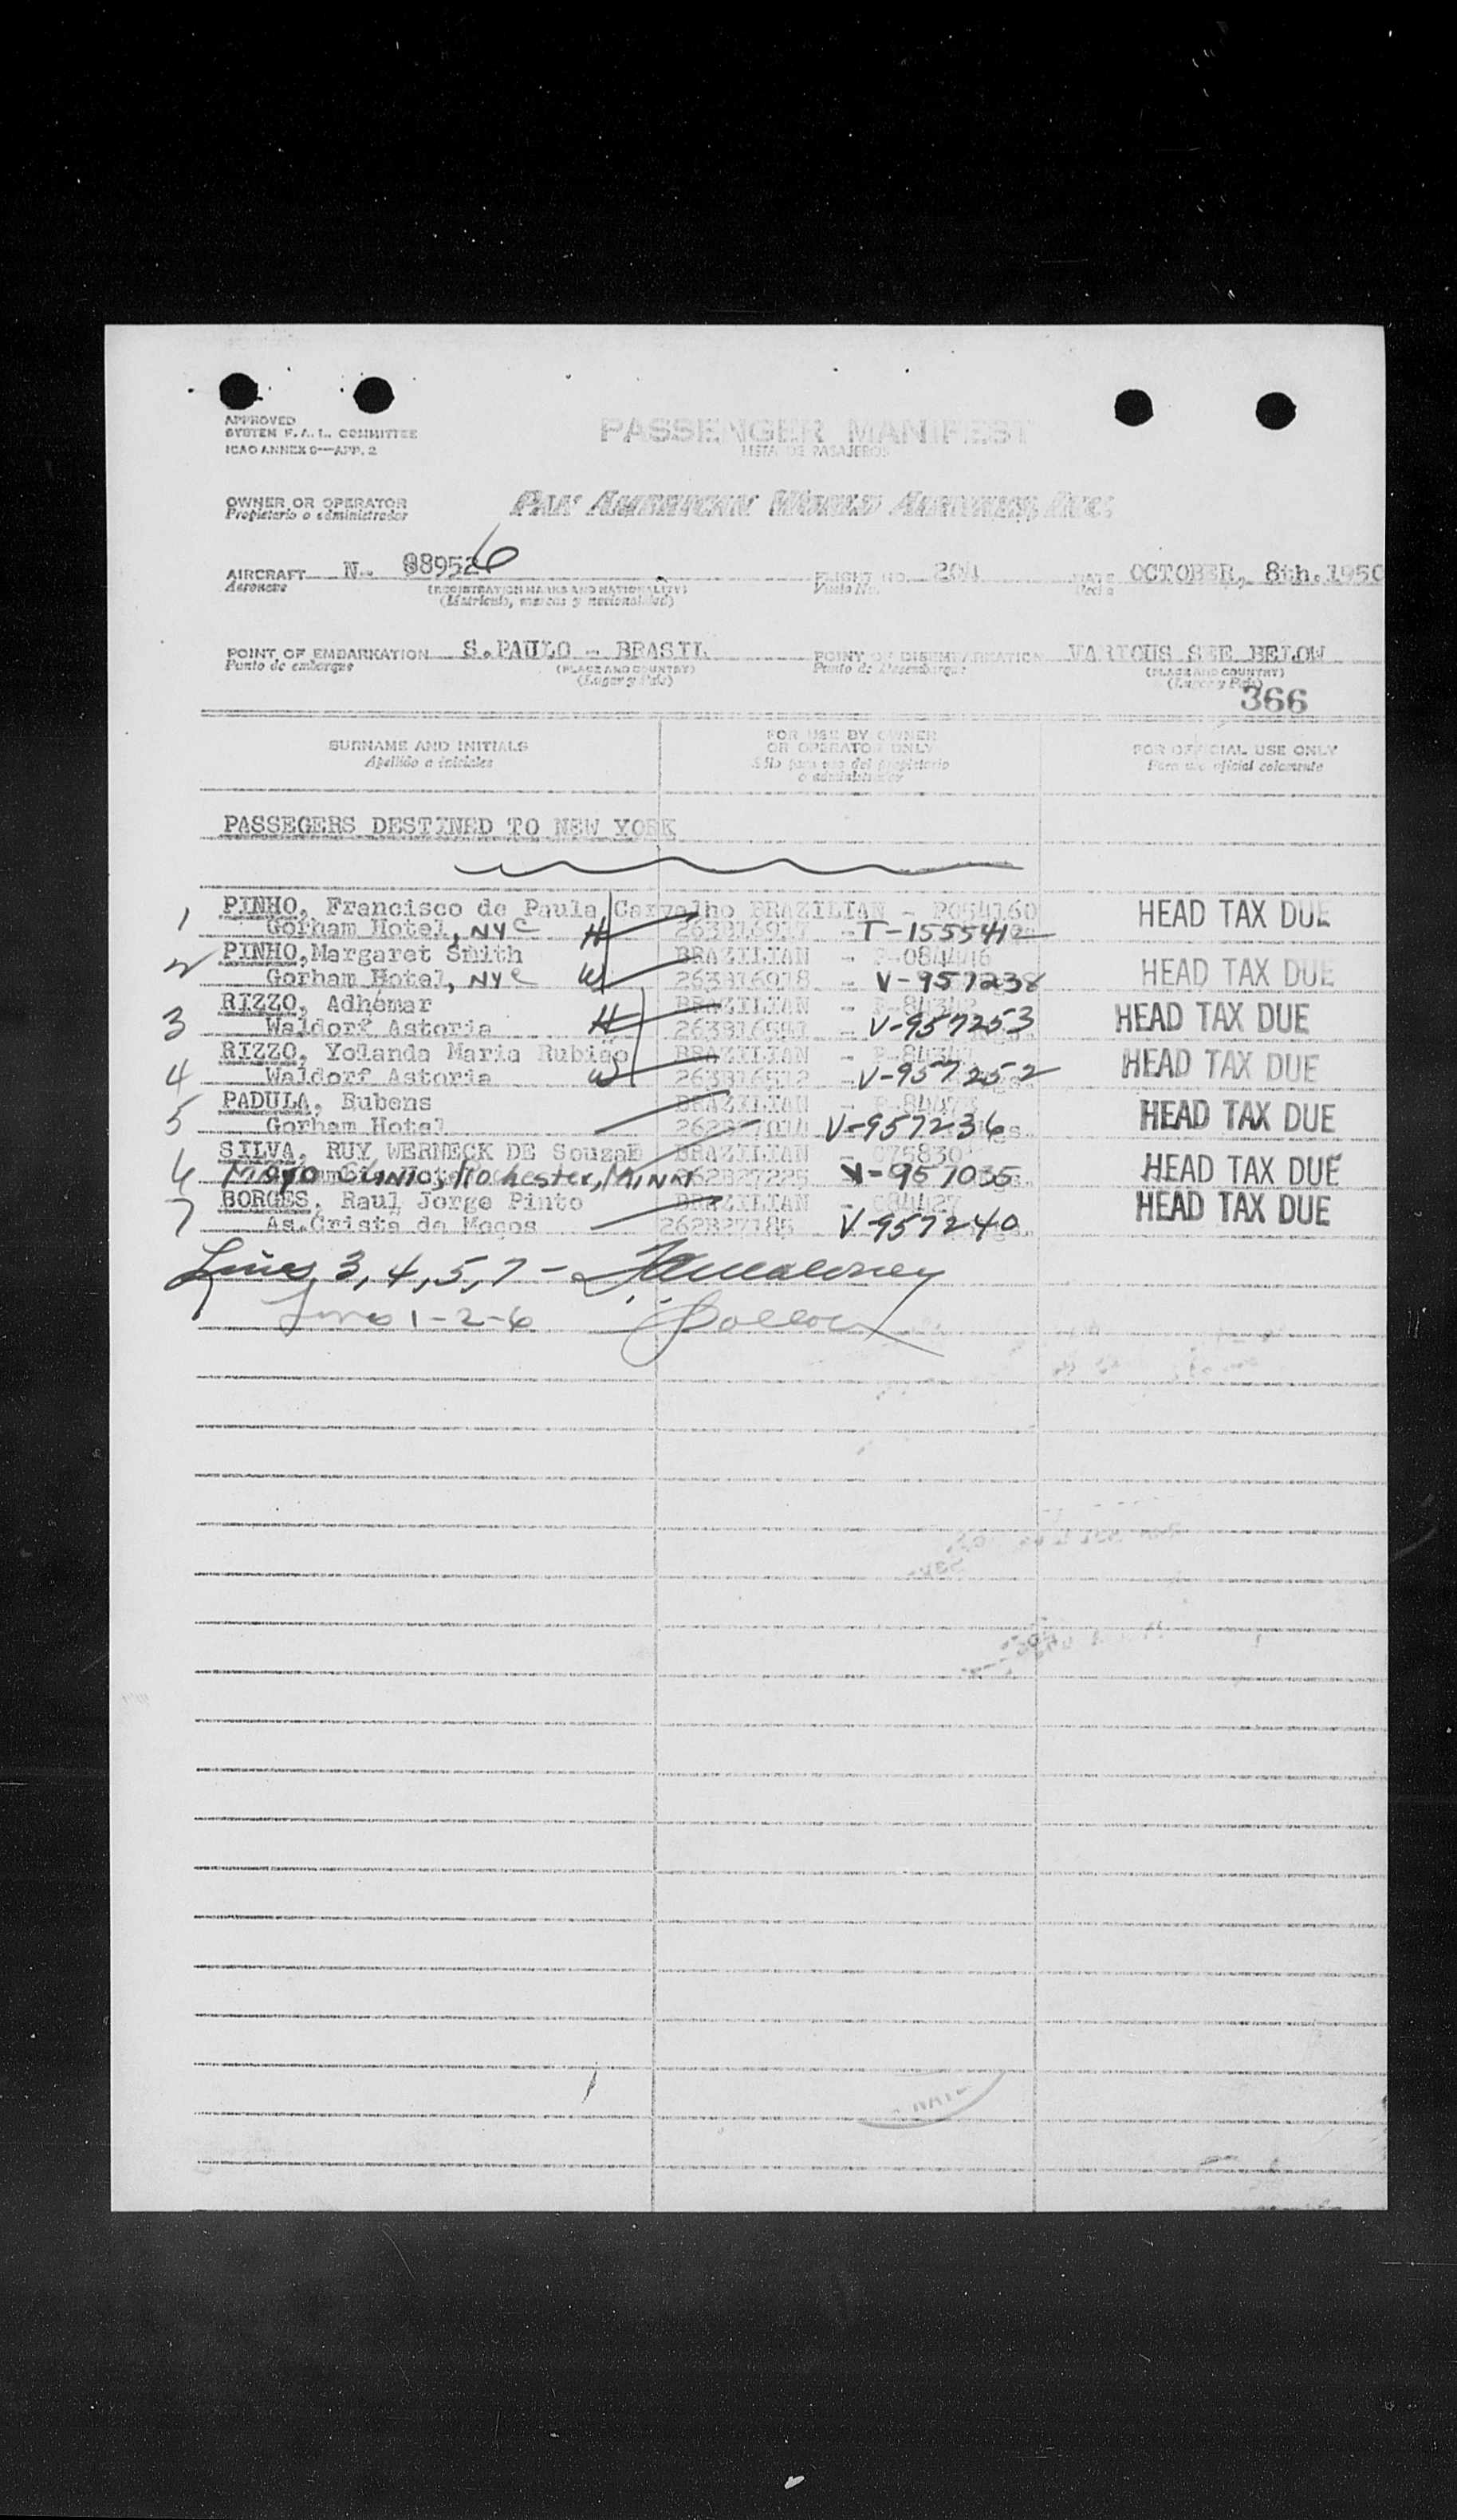 APPROVED
SYSTEM F.A.L. COMMITTEE
ICAO ANNEX 9—APP. 2
PASSENGER MANIFEST
LISTA DE PASAJEROS
OWNER OR OPERATOR
Propietario o administrador
PAN AMERICAN WORLD AIRWAYS, INC.
AIRCRAFT N- 889526
Aeronave
(REGISTRATION MARKS AND NATIONALITY)
(Matrícula, marcas y nacionalidad)
FLIGHT NO. 204
Vuelo No.
DATE OCTOBER, 8th.1950
Fecha
POINT OF EMBARKATION S.PAULO - BRASIL
Punto de embarque
(PLACE AND COUNTRY)
(Lugar y País)
POINT OF DISEMBARKATION VARIOUS SEE BELOW
Punto de desembarque
(PLACE AND COUNTRY)
(Lugar y País)
366
SURNAME AND INITIALS
Apellido e iniciales
FOR USE BY OWNER
OR OPERATOR ONLY
Sólo para uso del propietario
o administrador
FOR OFFICIAL USE ONLY
Para uso oficial solamente
PASSEGERS DESTINED TO NEW YORK
1 PINHO, Francisco de Paula Carvalho BRAZILIAN - P054160 HEAD TAX DUE
Gorham Hotel, NYC H T-1555412
2 PINHO,Margaret Smith BRAZILIAN - HEAD TAX DUE
Gorham Hotel, NYC W 263816918 V-957238
3 RIZZO, Adhémar BRAZILIAN - HEAD TAX DUE
Waldorf Astoria H V-957253
4 RIZZO, Yolanda Maria Rubião BRAZILIAN - HEAD TAX DUE
Waldorf Astoria W V-957252
5 PADULA, Rubens BRAZILIAN - HEAD TAX DUE
Gorham Hotel V-957236
6 SILVA, RUY WERNECK DE Souzab BRAZILIAN - 075830 HEAD TAX DUE
Mayo Clinic, Rochester, Minn V-957035
7 BORGES, Raul Jorge Pinto BRAZILIAN - 084427 HEAD TAX DUE
As.Crista de Moços 262827185 V-957240
Lines 3, 4, 5, 7 -
Lines 1-2-6